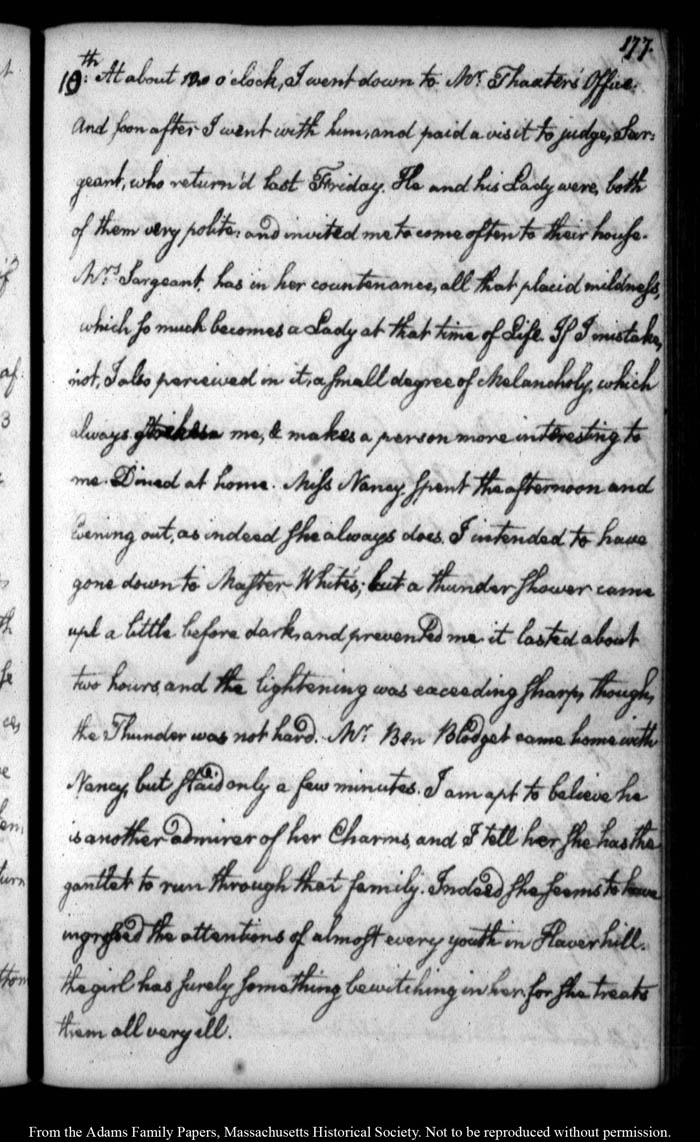 177.
19th: At about 12 o'clock, I went down to Mr. Thaxter's Office.
And soon after I went with him, and paid a visit to judge, Sar-
geant, who return'd last Friday. He and his Lady were, both
of them very polite: and invited me to come often to their house.
Mrs. Sargeant, has in her countenance, all that placid mildness,
which so much becomes a Lady at that time of Life. If I mistake,
not, I also perceived in it, a small degree of Melancholy, which
always strikes me, & makes a person more interesting to
me. Dined at home. Miss Nancy, spent the afternoon and
Evening out, as indeed she always does. I intended to have
gone down to Master White's; but a thunder shower came
up a little before dark, and prevented me it lasted about
two hours, and the lightening was exceeding sharp, though,
the Thunder was not hard. Mr. Ben Blodget came home with
Nancy, but staid only a few minutes. I am apt to believe he
is another admirer of her Charms, and I tell her she has the
gantlet to run through that family. Indeed she seems to have
ingrossed the attentions of almost every youth in Haverhill.
the girl has surely something bewitching in her, for she treats
them all very ill.
af
3
th
se
turn
From the Adams Family Papers, Massachusetts Historical Society. Not to be reproduced without permission.